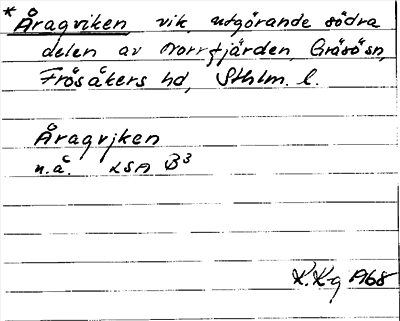 * Åragviken vik, utgörande södra
delen av Norrfjärden, Gräsö sn,
Frösåkers hd, Sthlm. l.
Åragvjken
n.å. LSA B3
K.Kg A68